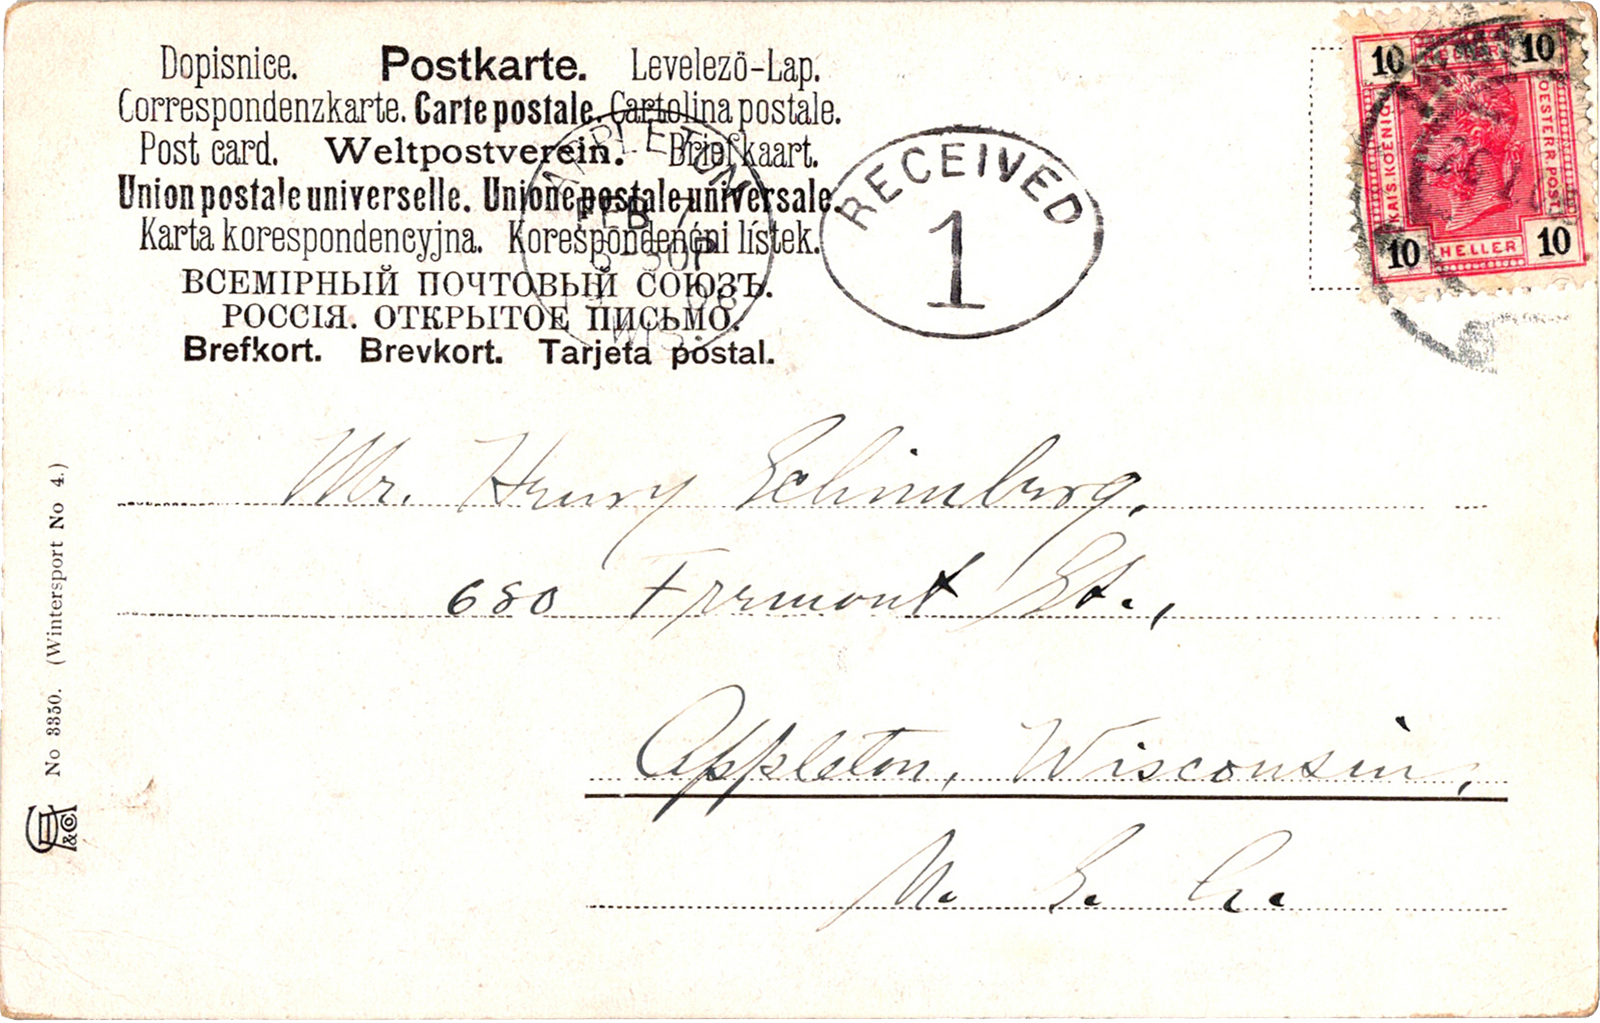 Dopisnice. Postkarte. Levelező-Lap.
Correspondenzkarte. Carte postale. Cartolina postale.
Post card. Weltpostverein. Briefkaart.
Union postale universelle. Unione postale universale.
Karta korespondencyjna. Korespondenčni lístek.
ВСЕМІРНЫЙ ПОЧТОВЫЙ СОЮЗЪ.
РОССІЯ. ОТКРЫТОЕ ПИСЬМО.
Brefkort. Brevkort. Tarjeta postal.
APPLETON
FEB 7
5-30P
06
WIS.
RECEIVED
1
10 HELLER 10
KAIS. KOENIGL. OESTERR. POST
10 HELLER 10
26 1
Mr. Henry Schimberg,
680 Fremont St.,
Appleton, Wisconsin,
U. S. A.
No 3350. (Wintersport No 4.)
&Co